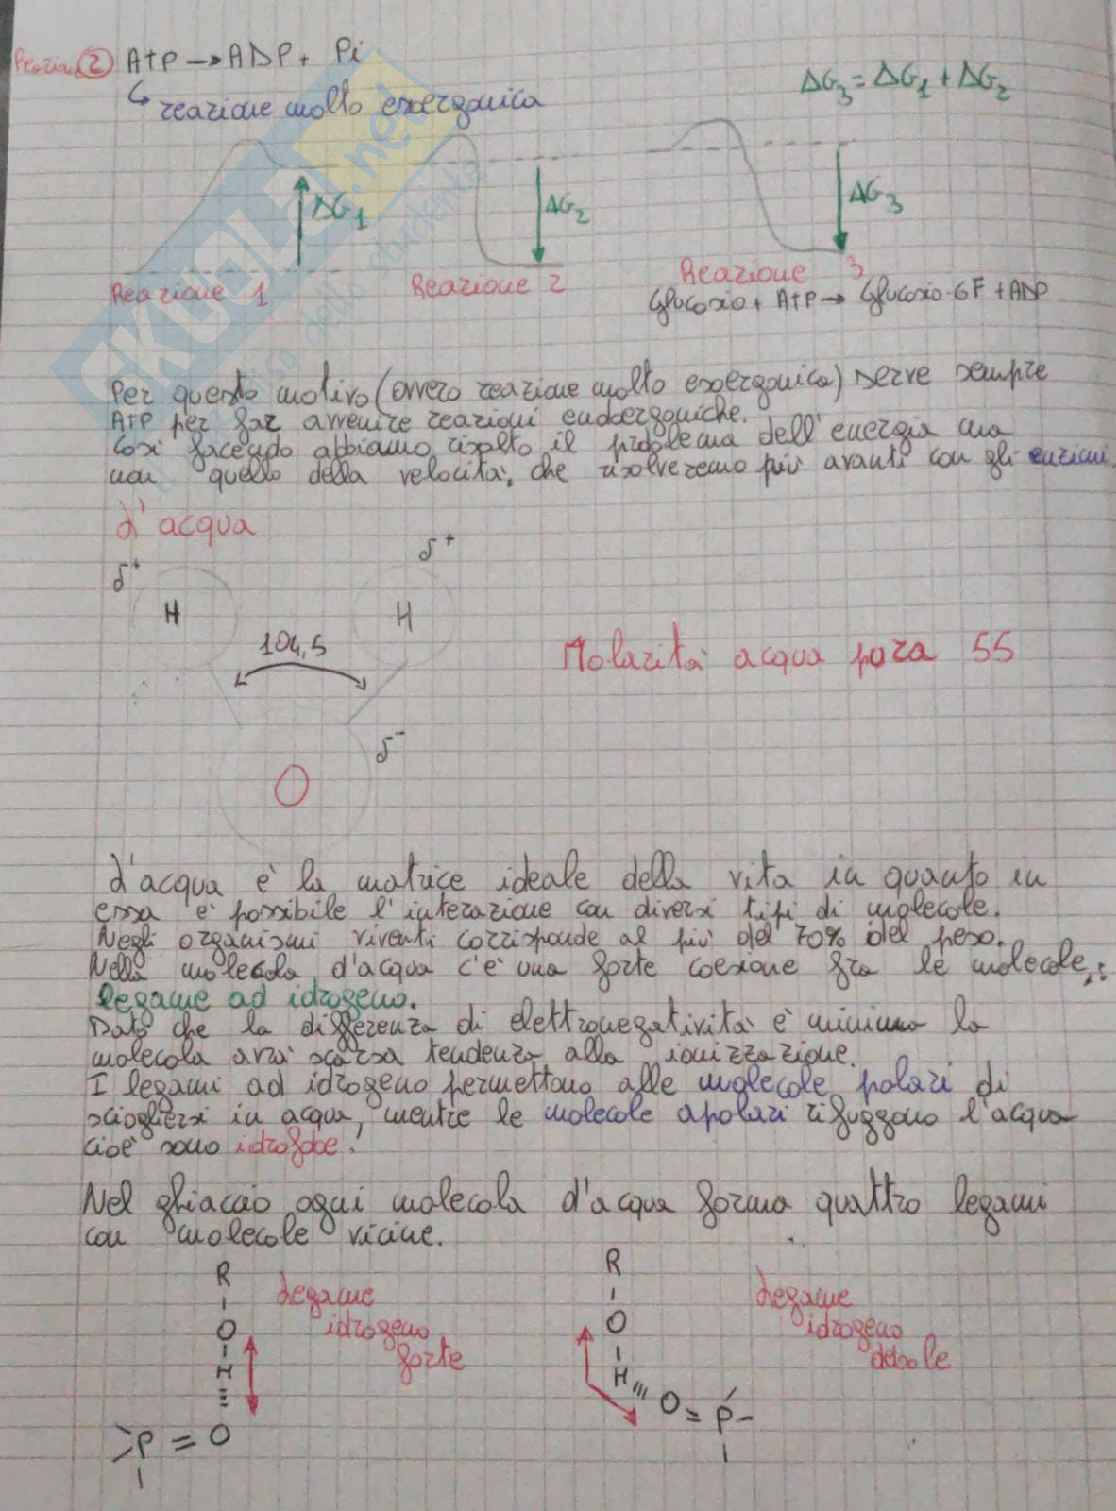 Reazione 2 ATP → ADP + Pi
↳ reazione molto esoergonica
ΔG3 = ΔG1 + ΔG2
ΔG1
ΔG2
ΔG3
Reazione 1
Reazione 2
Reazione 3
Glucosio + ATP → Glucosio-6F + ADP
SKUOLA.net
Per questo motivo (ovvero reazione molto esoergonica) serve sempre
ATP per far avvenire reazioni endoergoniche.
Così facendo abbiamo risolto il problema dell'energia ma
non quello della velocità, che risolveremo più avanti con gli enzimi.
L'acqua
δ+
δ+
H
H
104,5
Molarità acqua pura 55
δ-
O
L'acqua è la matrice ideale della vita in quanto in
essa è possibile l'interazione con diversi tipi di molecole.
Negli organismi viventi corrisponde al più del 70% del peso.
Nella molecola d'acqua c'è una forte coesione fra le molecole:
legame ad idrogeno.
Dato che la differenza di elettronegatività è minima la
molecola avrà scarsa tendenza alla ionizzazione.
I legami ad idrogeno permettono alle molecole polari di
sciogliersi in acqua, mentre le molecole apolari rifuggono l'acqua
cioè sono idrofobe.
Nel ghiaccio ogni molecola d'acqua forma quattro legami
con molecole vicine.
R
O
H
P = O
Legame
idrogeno
forte
R
O
H
O = P
Legame
idrogeno
debole